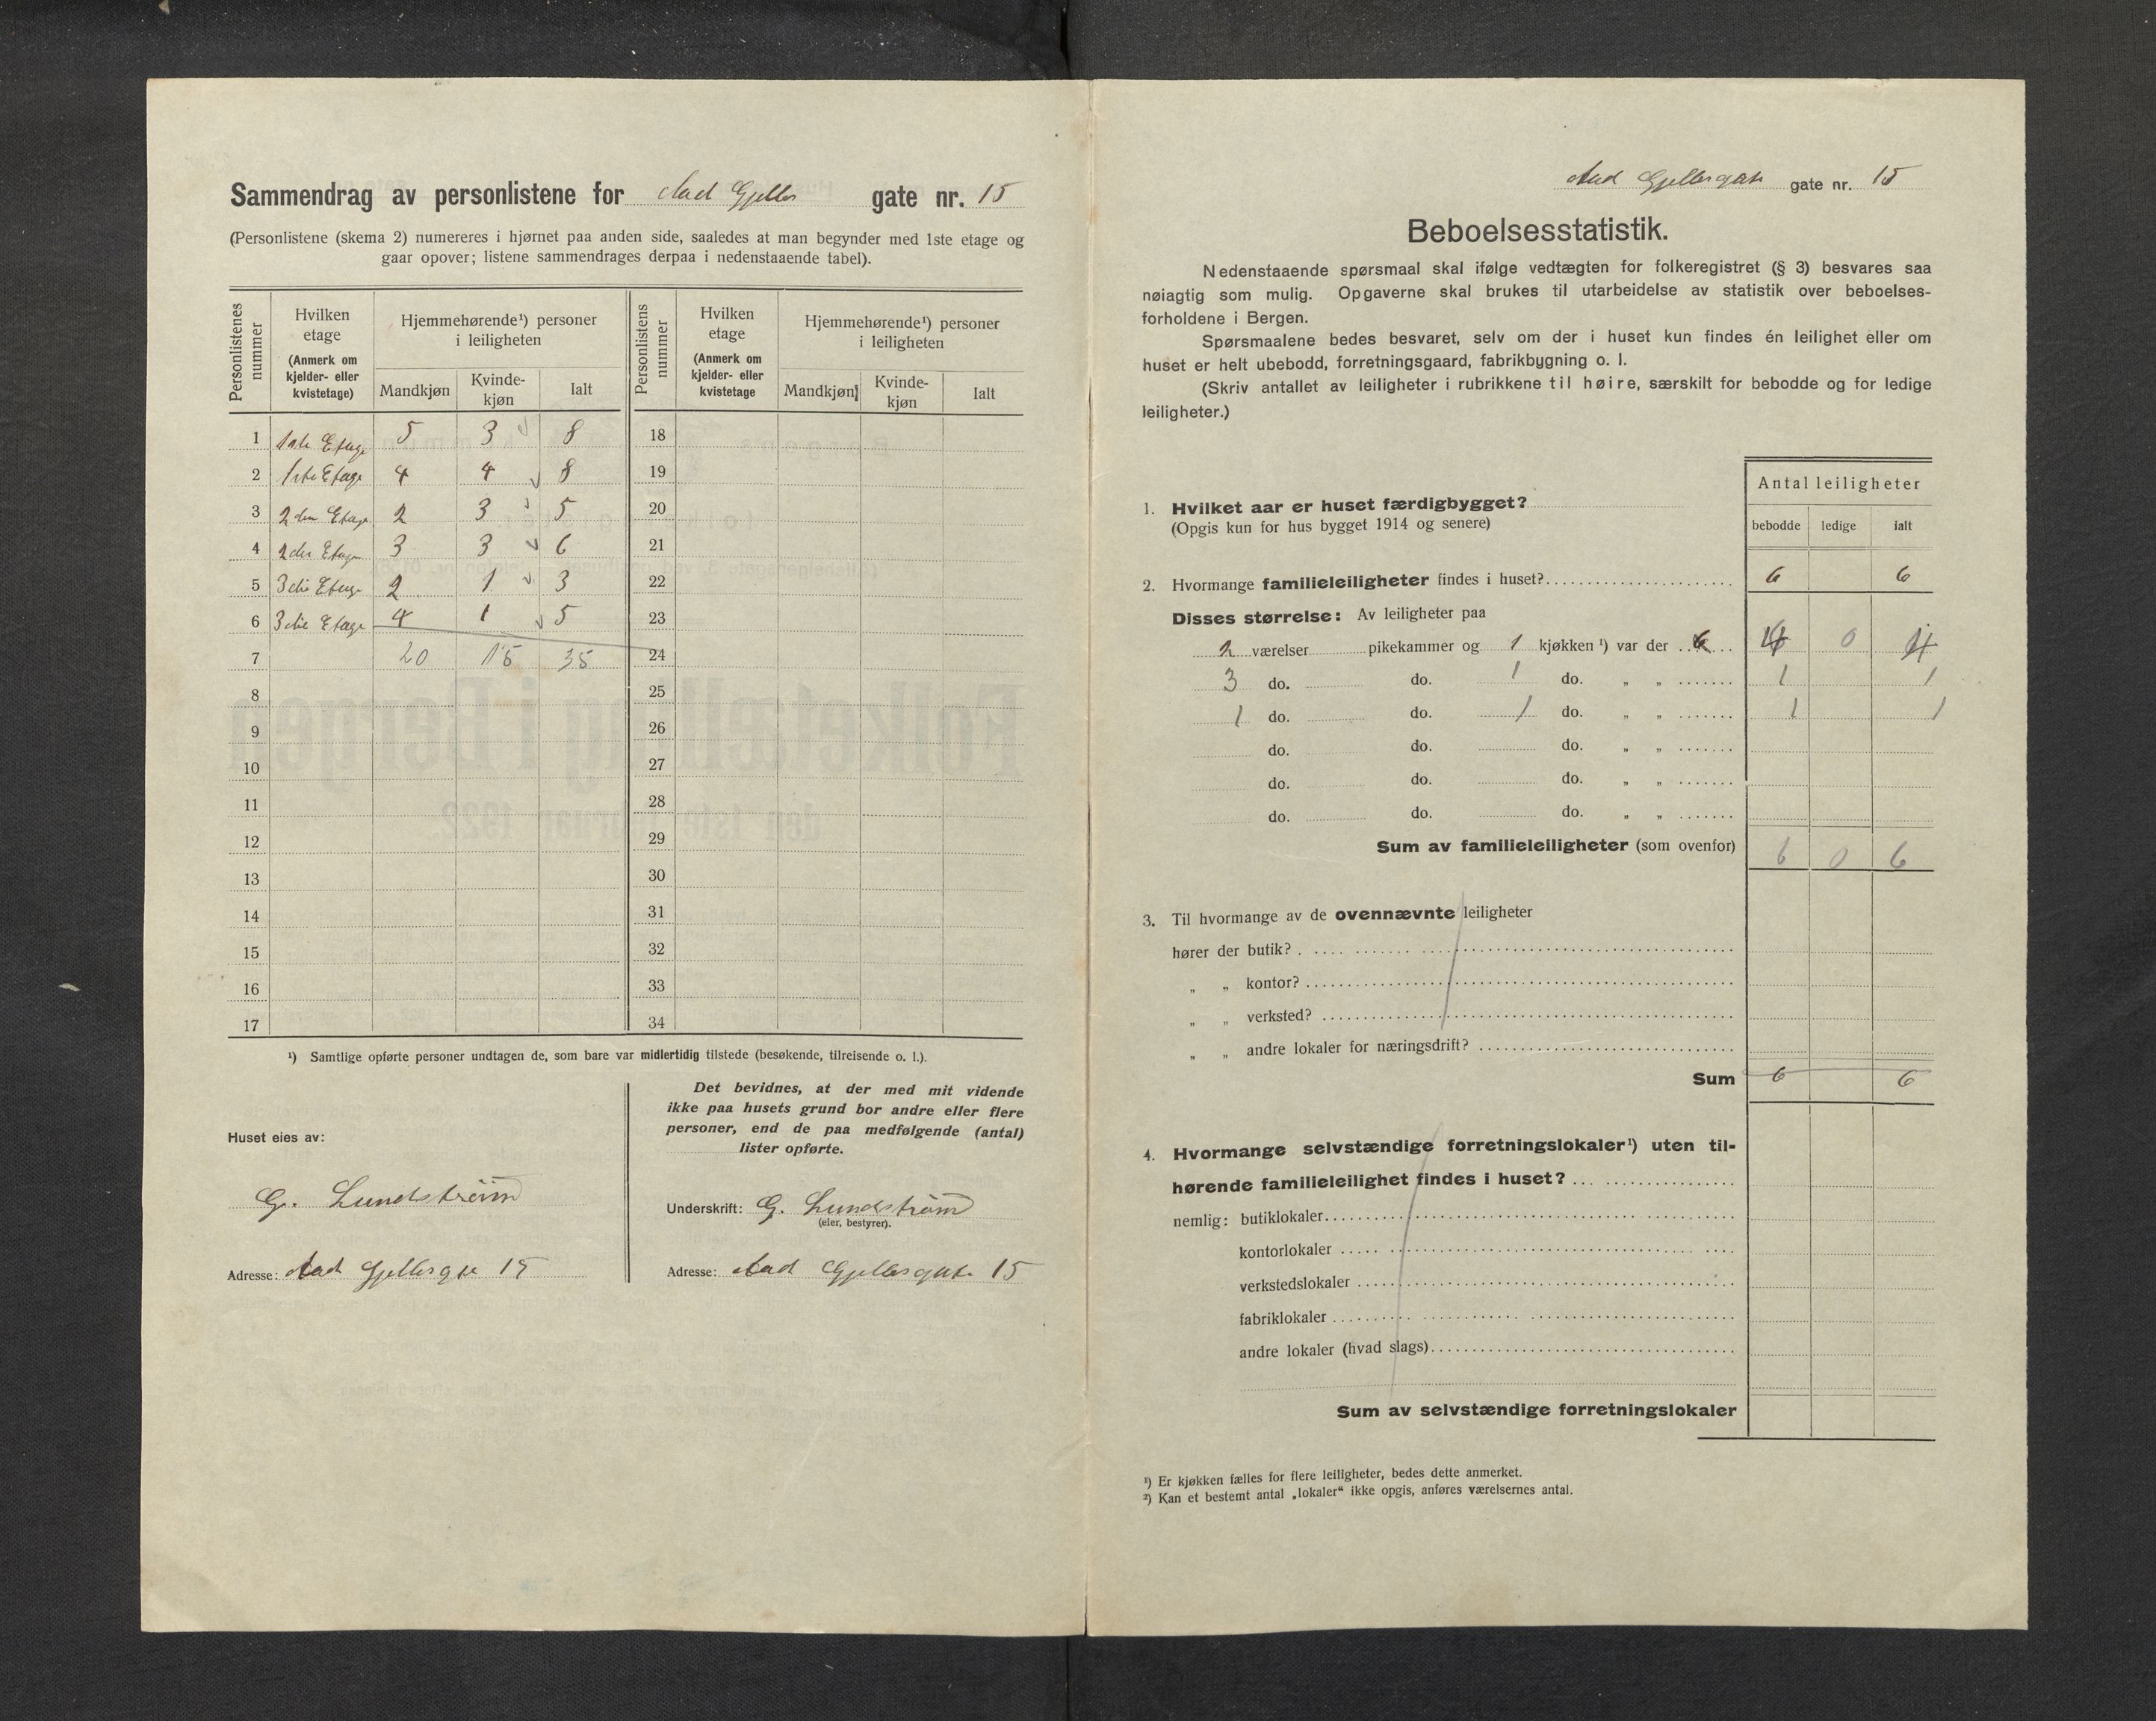 Sammendrag av personlistene for Aad Gjelles gate nr. 15
(Personlistene (skema 2) numereres i hjørnet paa anden side, saaledes at man begynder med 1ste etage og
gaar opover; listene sammendrages derpaa i nedenstaaende tabel).
Personlistenes nummer
Hvilken etage (Anmerk om kjelder- eller kvistetage)
Hjemmehørende¹) personer i leiligheten
Mandkjøn Kvinde-kjøn Ialt
Personlistens nummer
Hvilken etage (Anmerk om kjelder- eller kvistetage
Hjemmehørende¹) personer i leiligheten
Mandkjøn Kvinde-kjøn Ialt
1 1ste Etage 5 3 8 18
2 1ste Etage 4 4 8 19
3 2den Etage 2 3 5 20
4 2den Etage 3 3 6 21
5 3die Etage 2 1 3 22
6 3die Etage 4 1 5 23
7 20 15 35 24
8 25
9 26
10 27
11 28
12 29
13 30
14 31
15 32
16 33
17 34
¹) Samtlige opførte personer undtagen de, som bare var midlertidig tilstede (besøkende, tilreisende o. l.).
Huset eies av:
G. Lundström
Adresse: Aad Gjellesgte 15
Det bevidnes, at der med mit vidende
ikke paa husets grund bor andre eller flere
personer, end de paa medfølgende (antal)
lister opførte.
Underskrift: G. Lundström
(eier, bestyrer).
Adresse: Aad Gjellesgate 15
Aad Gjellesgate gate nr. 15
Beboelsesstatistik.
Nedenstaaende spørsmaal skal ifølge vedtægten for folkeregistret (§ 3) besvares saa
nøiagtig som mulig. Opgaverne skal brukes til utarbeidelse av statistik over beboelses-
forholdene i Bergen.
Spørsmaalene bedes besvaret, selv om der i huset kun findes én leilighet eller om
huset er helt ubebodd, forretningsgaard, fabrikbygning o. l.
(Skriv antallet av leiligheter i rubrikkene til høire, særskilt for bebodde og for ledige
leiligheter.)
Antal leiligheter
bebodde ledige ialt
1. Hvilket aar er huset færdigbygget?
(Opgis kun for hus bygget 1914 og senere)
2. Hvormange familieleiligheter findes i huset? 6 6
Disses størrelse: Av leiligheter paa
2 værelser pikekammer og 1 kjøkken ¹) var der 6 4 0 4
3 do. do. 1 do. „ „ 1 1
1 do. do. 1 do. „ „ 1 1
do. do. do. „ „
do. do. do. „ „
do. do. do. „ „
Sum av familieleiligheter (som ovenfor) 6 0 6
3. Til hvormange av de ovennævnte leiligheter
hører der butik?
„ „ kontor?
„ „ verksted?
„ „ andre lokaler for næringsdrift?
Sum 6 6
4. Hvormange selvstændige forretningslokaler¹) uten til-
hørende familieleilighet findes i huset?
nemlig: butiklokaler
kontorlokaler
verkstedslokaler
fabriklokaler
andre lokaler (hvad slags)
Sum av selvstændige forretningslokaler
¹) Er kjøkken fælles for flere leiligheter, bedes dette anmerket.
²) Kan et bestemt antal „lokaler“ ikke opgis, anføres værelsernes antal.